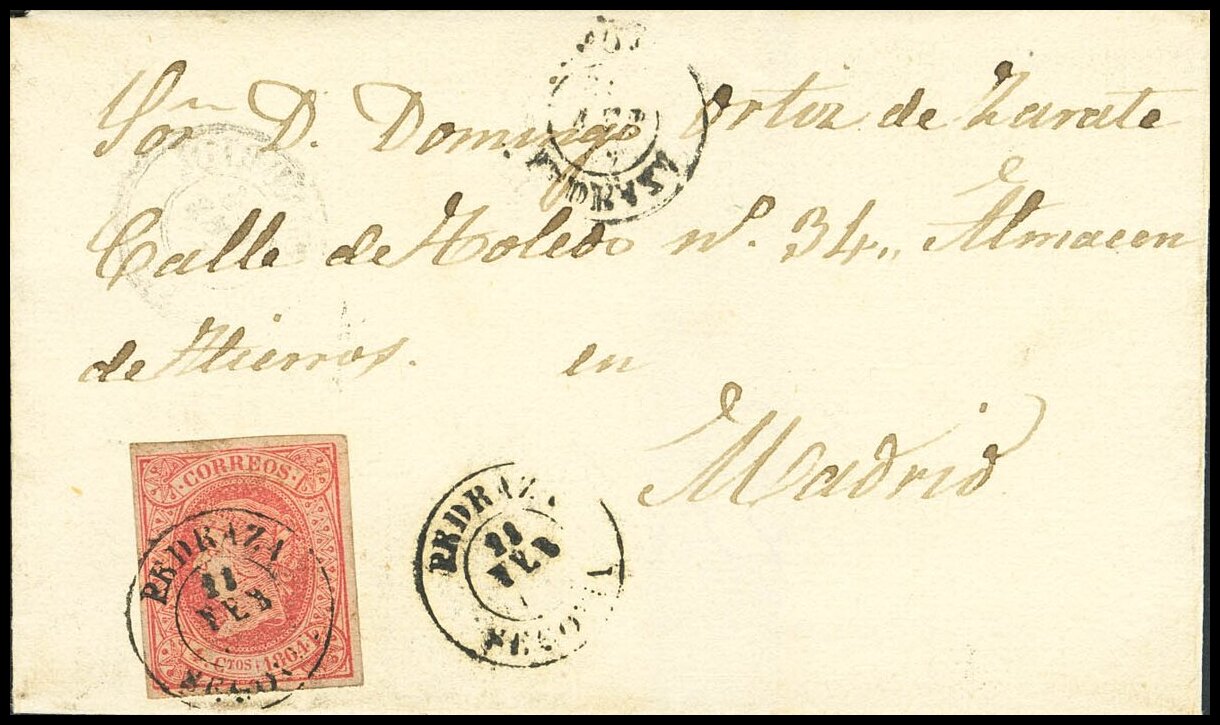 Sor. D. Domingo Ortiz de Zarate
Calle de Toledo nº. 34,, Almacen
de Hierros. en
Madrid
CORREOS
4 CTOS 1864
PEDRAZA
21
FEB
PEDRAZA
21
FEB
SEGOVIA